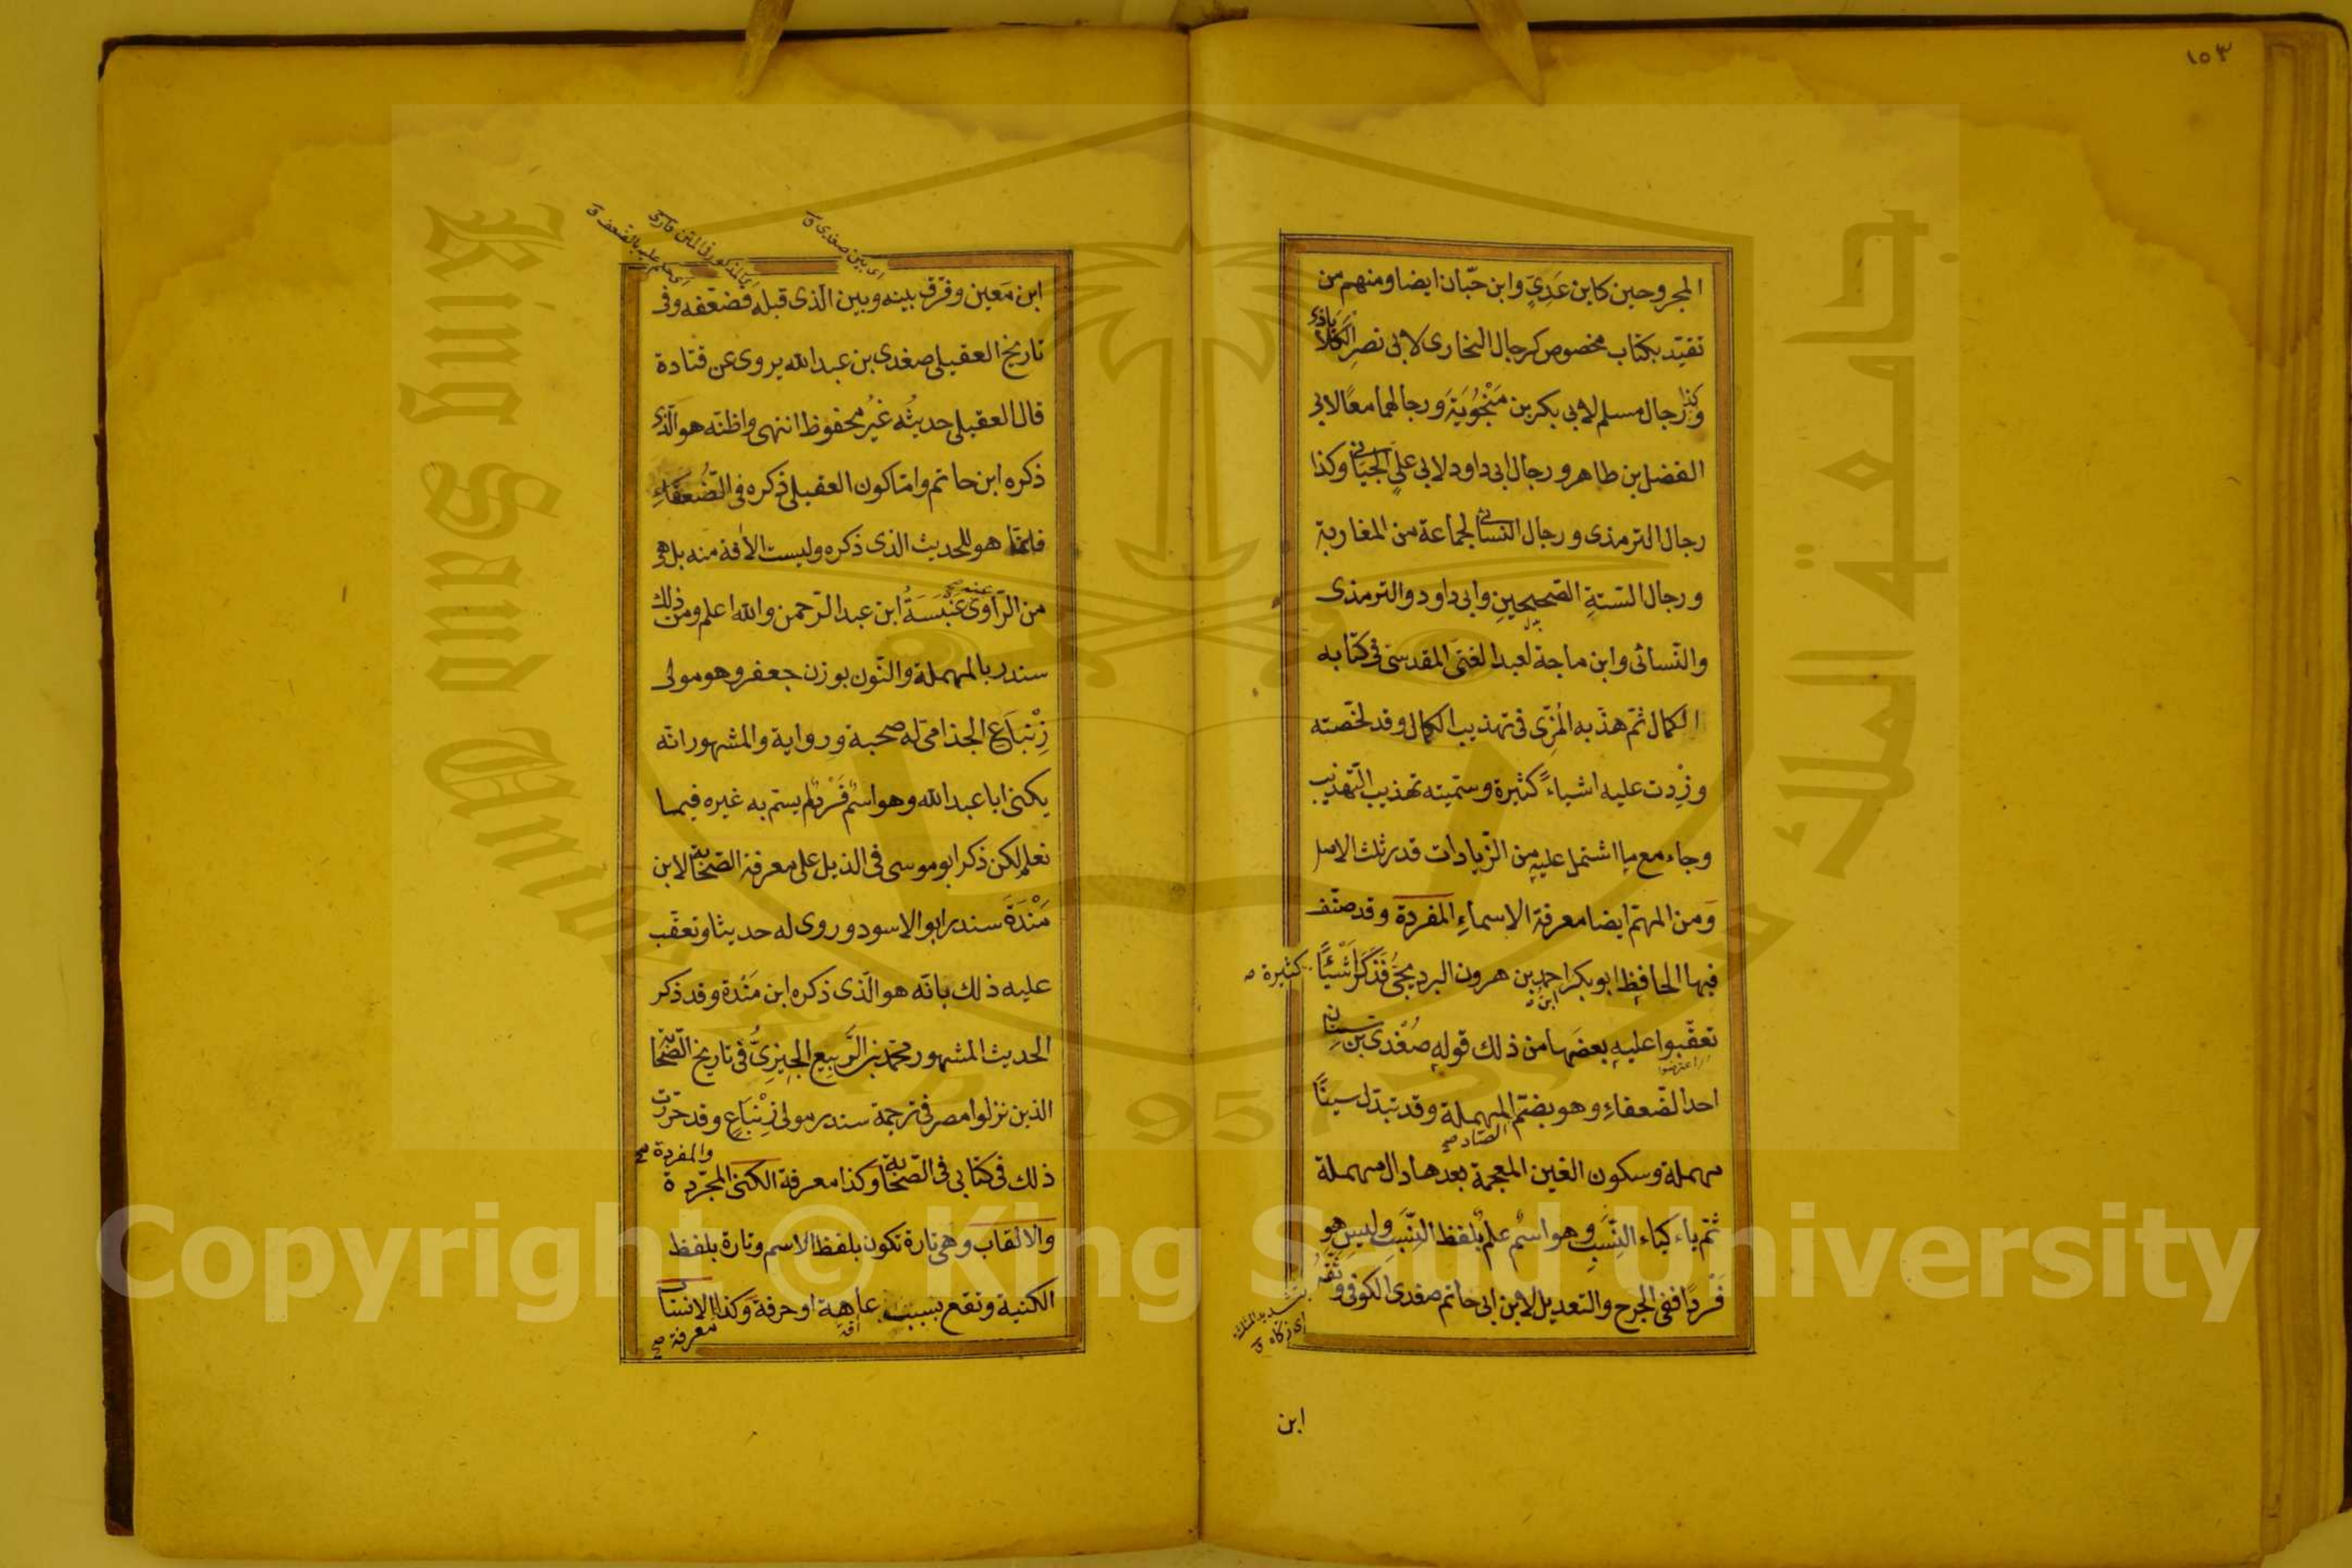 ١٥٣
المجروحين كابن عَدِيٍّ وابن حبّان ايضا ومنهم من
تقيّد بكتاب مخصوص كرجال البخارى لابى نصرٍ الكَلاَباذى
وكذا رجال مسلم لابى بكر بن مَنْجُوْيَة ورجالهما معًا لابى
الفضل بن طاهر ورجال ابى داود لابى علىٍّ الجيّانى وكذا
رجال الترمذى ورجال النسائى لجماعة من المغاربة
ورجال الستةِ الصحيحينِ وابى داود والترمذى
والنّسائى وابن ماجة لعبد الغنى المقدسى فى كتابه
الكمال ثمّ هذّبه المُزّى فى تهذيب الكمال وقد لخّصته
وزِدت عليه اشياءً كثيرة وسمّيته تهذيب التّهذيب
وجاء مع ما اشتمل عليهِ من الزّيادات قدر ثلث الاصل
وَمن المهمّ ايضا معرفة الاسماءِ المفردة وقد صنّف
فيها الحافظ ابو بكر احمد بن هرون البرديجىُّ فَذَكَرَ اَشْيَاءً كثيرة صح
تعقّبوا عليهِ بعضَها من ذلك قوله صُغْدى بن سِنان
اعترضوا
احد الضّعفاءِ وهو بضمّ المهملة وقد تبدّل سينًا
الصّاد صح
مهملة وسكون الغين المعجمة بعدها دال مهملة
ثمّ ياء كياء النِّسَبِ وهو اسمُ علمٌ بلفظ النِّسَبِ وليس هو
فَرْدًا ففى الجرح والتعديل لابن ابى حاتم صغدى الكوفى وَثَّقَهُ
اى زكّاه ق
ابن
اى بين صغدى ق
المذكور فى المتن قارى
اى حكم عليه بالضّعف ق
ابن مَعين وفرّق بينه وبين الّذى قبله فضعّفه وفى
تاريخ العقيلى صغدى بن عبد الله يروى عن قتادة
قال العقيلى حديثُه غيرُ محفوظ انتهى واظنّه هو الّذى
ذكره ابن حاتم وامّا كون العقيلى ذكره فى الضُّعفَاءِ
فانّما هو للحديث الذى ذكره وليست الآفة منه بل هى
من الرّاوى عنه عَنْبَسَةُ ابن عبد الرّحمن والله اعلم ومن ذلك
سندر بالمهملة والنّون بوزن جعفر وهو مولى
زِنْبَاعٍ الجذامى له صحبة ورواية والمشهور انّه
يكنى ابا عبد الله وهو اسمٌ فَرْدٌ لم يسمّ به غيره فيما
نعلم لكن ذكر ابو موسى فى الذيل على معرفة الصّحابة لابن
مَنْدَةَ سندر ابو الاسود وروى له حديثا وتعقّب
عليه ذلك بانّه هو الّذى ذكره ابن مَنْدة وقد ذكر
الحديث المشهور محمّد بن الرَّبيع الجِيزىُّ فى تاريخ الصّحابة
الذين نزلوا مصر فى ترجمة سندر مولى زِنْبَاعٍ وقد حرّرت
ذلك فى كتابى فى الصّحابة وكذا معرفة الكنى المجرّدة والمفردة صح
والالقاب وهى تارة تكون بلفظ الاسم وتارة بلفظ
الكنية وتقع بسبب عاهة او حرفة وكذا الانساب
آفة
معرفة صح
King Saud University
جامعة الملك
1957
Copyright © King Saud University